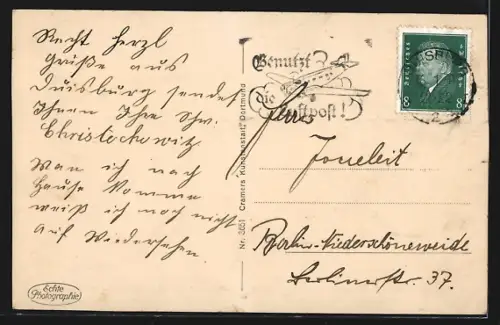 Recht herzl
Grüße aus
Duisburg sendet
Ihnen Ihre Schw.
Christochowitz
Wan ich nach
Hause komme
weiß ich noch nicht
auf Wiedersehen.
Echte
Photographie
Nr. 3651 Cramers Kunstanstalt, Dortmund
Benutzt
die Luftpost!
DEUTSCHES REICH
8 8
Joneleit
Berlin-Niederschöneweide
Berlinerstr. 37.